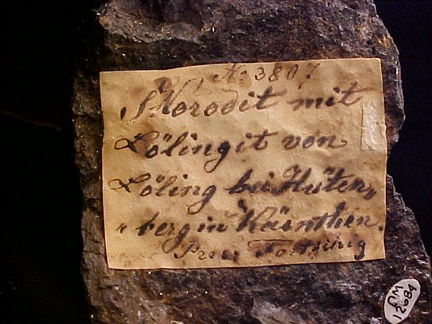 N: 3807
Skorodit mit
Lölingit von
Löling bei Hüten„
„berg in Kärnthen.
CM
12684